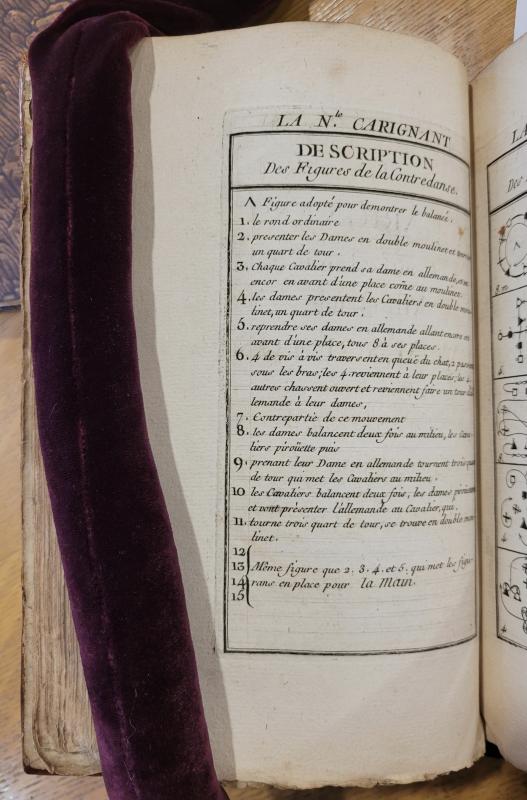 LA N.le CARIGNANT
DESCRIPTION
Des Figures de la Contredanse.
Λ Figure adopté pour demontrer le balancé.
1. le rond ordinaire
2. presenter les Dames en double moulinet et
un quart de tour.
3. Chaque Cavalier prend sa dame en allemande,
encor en avant d'une place come au moulinet.
4. les dames presentent les Cavaliers en double mou
linet, un quart de tour.
5. reprendre ses dames en allemande allant encore en
avant d'une place, tous 8 à ses places.
6. 4 de vis à vis traversent en queüe du chat, 2 passent
sous les bras; les 4 reviennent à leur places, les 4
autres chassent ouvert et reviennent faire un tour d'al
lemande à leur dames,
7. Contrepartie de ce mouvement
8. les dames balancent deux fois au milieu, les Cava
liers piroüette puis
9. prenant leur Dame en allemande tournent trois quar
de tour qui met les Cavaliers au milieu.
10 les Cavaliers balancent deux fois, les dames
et vont présenter l'allemande au Cavalier, qui,
11. tourne trois quart de tour, se trouve en double mou
linet.
12
13 Même figure que 2. 3. 4. et 5. qui met les figu-
14 rans en place pour la main.
15
LA
Des
8.m